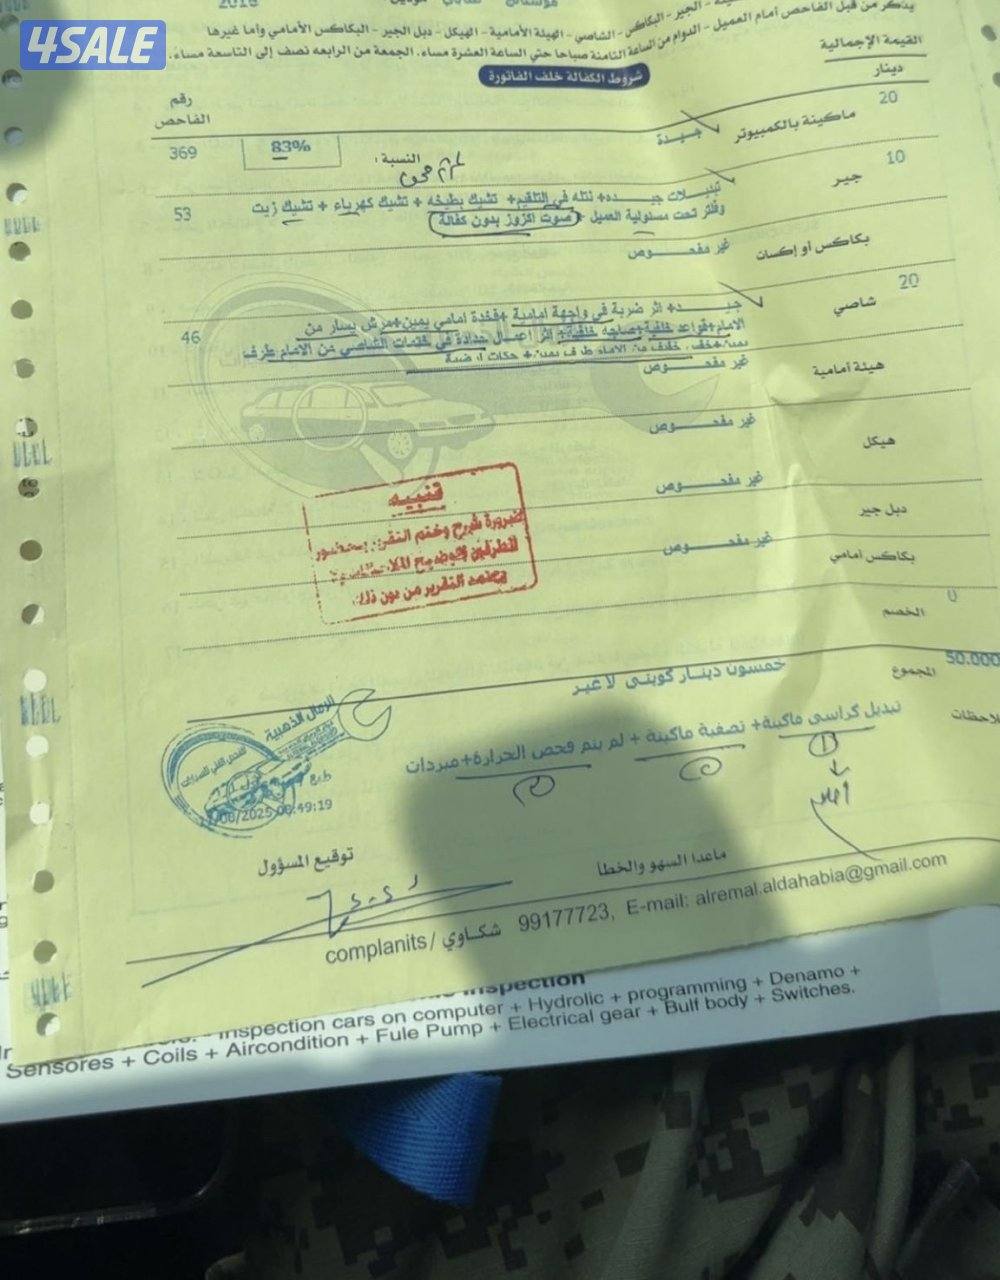 4SALE
2016
يذكر من قبل الفاحص أمام العميل - الدوام من الساعة الثامنة صباحا حتي الساعة العشرة مساء، الجمعة من الرابعه نصف إلى التاسعة مساءً.
الجير - البكاكس - الشاصي - الهيئة الأمامية - الهيكل - دبل الجير - البكاكس الأمامي وأما غيرها
شروط الكفالة خلف الفاتورة
القيمة الإجمالية
دينار
رقم
الفاحص
20
ماكينة بالكمبيوتر
جيدة
النسبة:
83%
369
10
جير
تبديلات جيده+ نتله في التلقيم+ تشيك بطيخه + تشيك كهرباء + تشيك زيت
وفلتر تحت مسئولية العميل + صوت اكزوز بدون كفالة
53
بكاكس أو إكسات
غير مفحوص
20
شاصي
جيد+ اثر ضربة في واجهة امامية +فخدة امامي يمين+مرش يسار من
الامام+قواعد خلفية+صاجه خلفية+ اثر اعمال حدادة في خلفات الشاصي من الامام طرف
46
هيئة أمامية
غير مفحوص
هيكل
غير مفحوص
دبل جير
غير مفحوص
بكاكس أمامي
غير مفحوص
تنبيه
ضرورة شرح وختم التقرير بحضور
الطرفين لتوضيح الملاحظات ولا
يعتمد التقرير من دون ذلك
الخصم
0
المجموع
50.000
خمسون دينار كويتى لا غير
تبديل كراسي ماكينة+ تصفية ماكينة + لم يتم فحص الحرارة+مبردات
الرمال الذهبية
2025 08:49:19
توقيع المسؤول
ماعدا السهو والخطأ
complanits / شكاوي 99177723, E-mail: alremal.aldahabia@gmail.com
inspection
inspection cars on computer + Hydrolic + programming + Denamo +
Sensores + Coils + Aircondition + Fule Pump + Electrical gear + Bulf body + Switches.